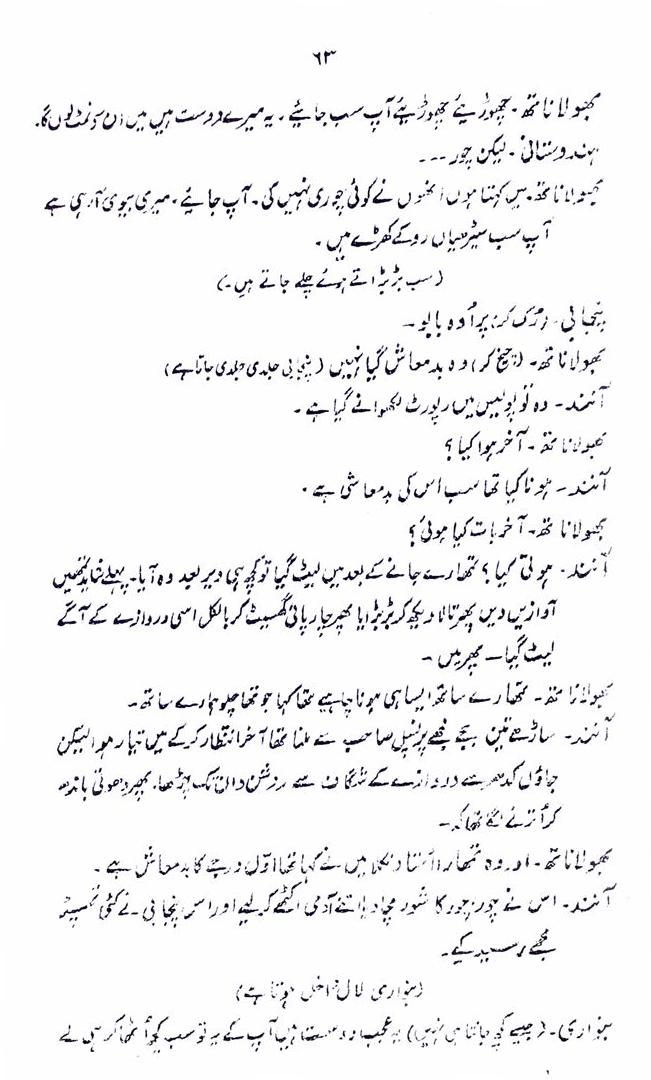 ۶۳
بھولا ناتھ۔ چھوڑیئے چھوڑیئے آپ سب جایئے۔ یہ میرے دوست ہیں میں ان سے نمٹ لوں گا۔
ہندوستانی۔ لیکن چور ---
بھولا ناتھ۔ میں کہتا ہوں انھوں نے کوئی چوری نہیں کی۔ آپ جایئے۔ میری بیوی آ رہی ہے
آپ سب سیڑھیاں روکے کھڑے ہیں۔
(سب بڑبڑاتے ہوئے چلے جاتے ہیں۔)
پنجابی۔ (رک کر) پر اُدہ بابو۔
بھولا ناتھ۔ (چیخ کر) وہ بدمعاش گیا نہیں (پنجابی جلدی جلدی جاتا ہے)
آنند۔ وہ تو پولیس میں رپورٹ لکھوانے گیا ہے۔
بھولا ناتھ۔ آخر ہوا کیا؟
آنند۔ ہونا کیا تھا سب اس کی بدمعاشی ہے۔
بھولا ناتھ۔ آخر بات کیا ہوئی؟
آنند۔ ہوتی کیا؟ تمھارے جانے کے بعد میں لیٹ گیا تو کچھ ہی دیر بعد وہ آیا۔ پہلے شاید تمھیں
آوازیں دیں پھر تالا دیکھ کر بڑبڑایا پھر چارپائی گھسیٹ کر بالکل اسی دروازے کے آگے
لیٹ گیا۔ پھر میں۔
بھولا ناتھ۔ تمھارے ساتھ ایسا ہی ہونا چاہیے تھا کہا جو تھا چلو ہمارے ساتھ۔
آنند۔ ساڑھے تین بجے مجھے پرنسپل صاحب سے ملنا تھا آخر انتظار کرکے میں تیار ہوا لیکن
جاؤں کدھر سے دروازے کے شگاف سے روشن دان تک چڑھا، پھر دھوتی باندھ
کر اُترنے لگا تھا کہ۔
بھولا ناتھ۔ اور وہ تمھارا استاد نکلا میں نے کہا تھا اوّل درجے کا بدمعاش ہے۔
آنند۔ اس نے چور چور کا شور مچا دیا اتنے آدمی اکٹھے کر لیے اور اس پنجابی نے کئی تھپیڑ
مجھے رسید کیے۔
(بنواری لال داخل ہوتا ہے)
بنواری۔ (جیسے کچھ جانتا ہی نہیں) یہ عجیب دوست ہیں آپ کے یہ تو سب کچھ اُٹھا کر ہی لے